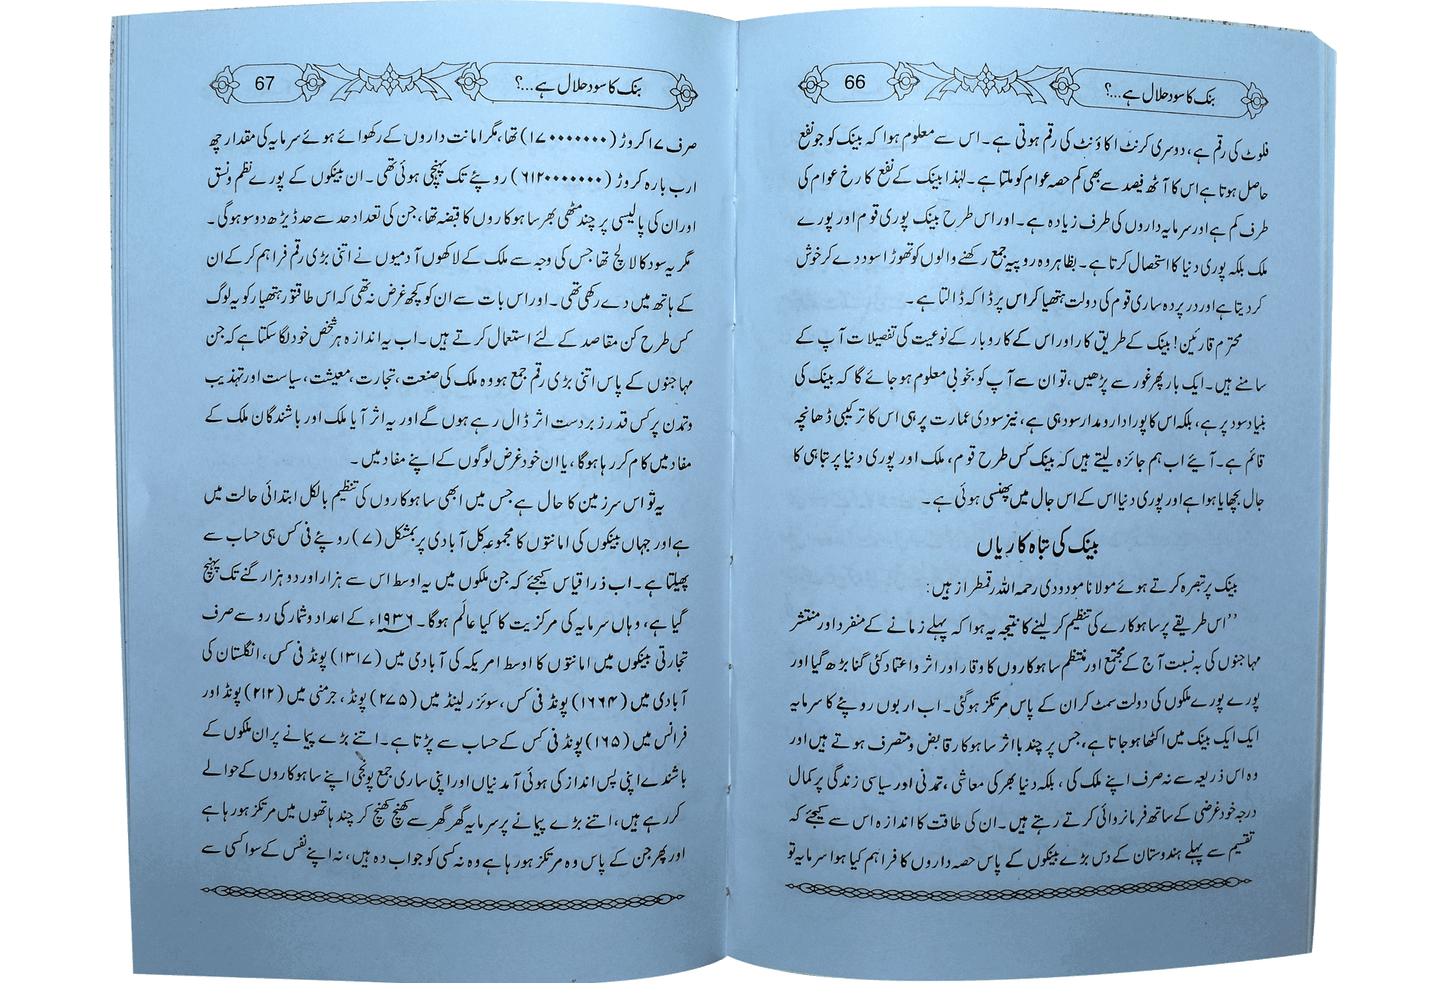 بنک کا سود حلال ہے...؟
66
فلوٹ کی رقم ہے، دوسری کرنٹ اکاؤنٹ کی رقم ہوتی ہے۔ اس سے معلوم ہوا کہ بینک کو جو نفع
حاصل ہوتا ہے اس کا آٹھ فیصد سے بھی کم حصہ عوام کو ملتا ہے۔ لہٰذا بینک کے نفع کا رخ عوام کی
طرف کم ہے اور سرمایہ داروں کی طرف زیادہ ہے۔ اور اس طرح بینک پوری قوم اور پورے
ملک بلکہ پوری دنیا کا استحصال کرتا ہے۔ بظاہر وہ روپیہ جمع رکھنے والوں کو تھوڑا سود دے کر خوش
کر دیتا ہے اور در پردہ ساری قوم کی دولت ہتھیا کر اس پر ڈاکہ ڈالتا ہے۔
محترم قارئین! بینک کے طریق کار اور اس کے کاروبار کے نوعیت کی تفصیلات آپ کے
سامنے ہیں۔ ایک بار پھر غور سے پڑھیں، تو ان سے آپ کو بخوبی معلوم ہو جائے گا کہ بینک کی
بنیاد سود پر ہے، بلکہ اس کا پورا دارومدار سود ہی ہے، نیز سودی عمارت پر ہی اس کا ترکیبی ڈھانچہ
قائم ہے۔ آیئے اب ہم جائزہ لیتے ہیں کہ بینک کس طرح قوم، ملک اور پوری دنیا پر تباہی کا
جال بچھایا ہوا ہے اور پوری دنیا اس کے اس جال میں پھنسی ہوئی ہے۔
بینک کی تباہ کاریاں
بینک پر تبصرہ کرتے ہوئے مولانا مودودی رحمہ اللہ رقمطراز ہیں:
’’اس طریقے پر ساہوکارے کی تنظیم کر لینے کا نتیجہ یہ ہوا کہ پہلے زمانے کے منفرد اور منتشر
مہاجنوں کی بہ نسبت آج کے مجتمع اور منتظم ساہوکاروں کا وقار اور اثر و اعتماد کئی گنا بڑھ گیا اور
پورے پورے ملکوں کی دولت سمٹ کر ان کے پاس مرتکز ہو گئی۔ اب اربوں روپئے کا سرمایہ
ایک ایک بینک میں اکٹھا ہو جاتا ہے، جس پر چند با اثر ساہوکار قابض و متصرف ہوتے ہیں اور
وہ اس ذریعہ سے نہ صرف اپنے ملک کی، بلکہ دنیا بھر کی معاشی، تمدنی اور سیاسی زندگی پر کمال
درجہ خود غرضی کے ساتھ فرمانروائی کرتے رہتے ہیں۔ ان کی طاقت کا اندازہ اس سے کیجئے کہ
تقسیم سے پہلے ہندوستان کے دس بڑے بینکوں کے پاس حصہ داروں کا فراہم کیا ہوا سرمایہ تو
بنک کا سود حلال ہے...؟
67
صرف ۱۷ کروڑ (۱۷۰۰۰۰۰۰۰) تھا، مگر امانت داروں کے رکھوائے ہوئے سرمایہ کی مقدار چھ
ارب بارہ کروڑ (۶۱۲۰۰۰۰۰۰۰) روپئے تک پہنچی ہوئی تھی۔ ان بینکوں کے پورے نظم و نسق
اور ان کی پالیسی پر چند مٹھی بھر ساہوکاروں کا قبضہ تھا، جن کی تعداد حد سے حد ڈیڑھ دو سو ہوگی۔
مگر یہ سود کا لالچ تھا جس کی وجہ سے ملک کے لاکھوں آدمیوں نے اتنی بڑی رقم فراہم کر کے ان
کے ہاتھ میں دے رکھی تھی۔ اور اس بات سے ان کو کچھ غرض نہ تھی کہ اس طاقتور ہتھیار کو یہ لوگ
کس طرح کن مقاصد کے لئے استعمال کرتے ہیں۔ اب یہ اندازہ ہر شخص خود لگا سکتا ہے کہ جن
مہاجنوں کے پاس اتنی بڑی رقم جمع ہو وہ ملک کی صنعت، تجارت، معیشت، سیاست اور تہذیب
و تمدن پر کس قدر زبردست اثر ڈال رہے ہوں گے اور یہ اثر آیا ملک اور باشندگان ملک کے
مفاد میں کام کر رہا ہوگا، یا ان خود غرض لوگوں کے اپنے مفاد میں۔
یہ تو اس سرزمین کا حال ہے جس میں ابھی ساہوکاروں کی تنظیم بالکل ابتدائی حالت میں
ہے اور جہاں بینکوں کی امانتوں کا مجموعہ کل آبادی پر بمشکل (۷) روپئے فی کس ہی حساب سے
پھیلتا ہے۔ اب ذرا قیاس کیجئے کہ جن ملکوں میں یہ اوسط اس سے ہزار اور دو ہزار گنے تک پہنچ
گیا ہے، وہاں سرمایہ کی مرکزیت کا کیا عالم ہوگا۔ ۱۹۳۶ء کے اعداد و شمار کی رو سے صرف
تجارتی بینکوں میں امانتوں کا اوسط امریکہ کی آبادی میں (۱۳۱۷) پونڈ فی کس، انگلستان کی
آبادی میں (۱۶۶۴) پونڈ فی کس، سوئزر لینڈ میں (۲۷۵) پونڈ، جرمنی میں (۲۱۲) پونڈ اور
فرانس میں (۱۶۵) پونڈ فی کس کے حساب سے پڑتا ہے۔ اتنے بڑے پیمانے پر ان ملکوں کے
باشندے اپنی پس انداز کی ہوئی آمدنیاں اور اپنی ساری جمع پونجی اپنے ساہوکاروں کے حوالے
کر رہے ہیں، اتنے بڑے پیمانے پر سرمایہ گھر گھر سے کھنچ کھنچ کر چند ہاتھوں میں مرتکز ہو رہا ہے
اور پھر جن کے پاس وہ مرتکز ہو رہا ہے وہ نہ کسی کو جواب دہ ہیں، نہ اپنے نفس کے سوا کسی سے